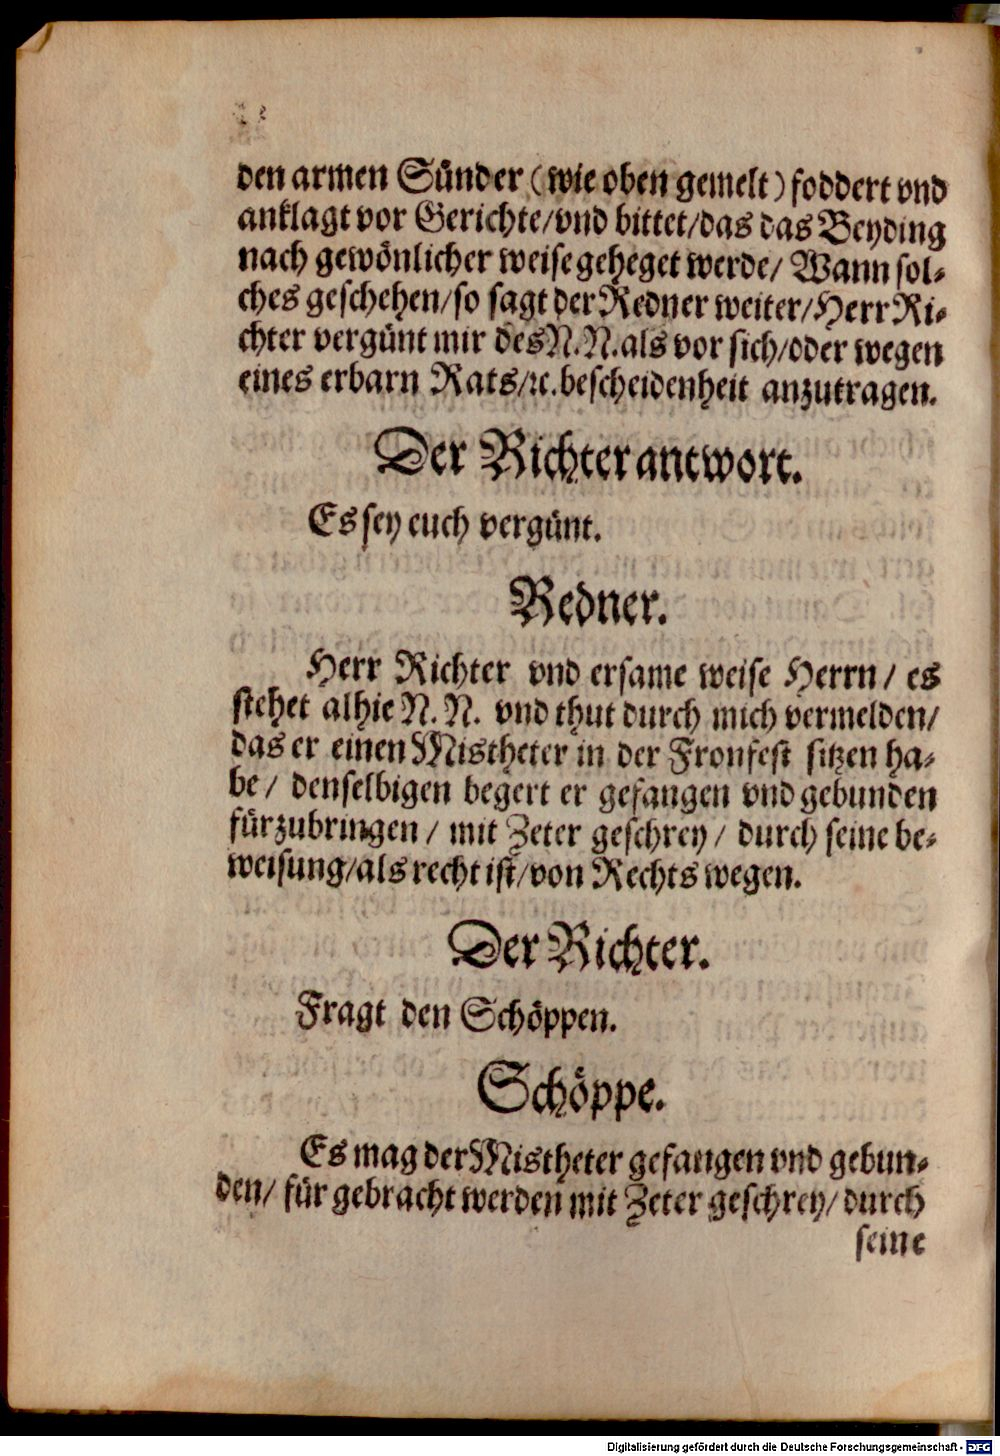 den armen Sünder (wie oben gemelt) foddert vnd
anklagt vor Gerichte/vnd bittet/das das Beyding
nach gewönlicher weise geheget werde/ Wann sol-
ches geschehen/so sagt der Redner weiter/Herr Ri-
chter vergünt mir des N. N. als vor sich/oder wegen
eines erbarn Rats/ꝛc. bescheidenheit anzutragen.
Der Richter antwort.
Es sey euch vergünt.
Redner.
Herr Richter vnd ersame weise Herrn / es
stehet alhie N. N. vnd thut durch mich vermelden/
das er einen Mistheter in der Fronfest sitzen ha-
be / denselbigen begert er gefangen vnd gebunden
fürzubringen / mit Zeter geschrey / durch seine be-
weisung/als recht ist/von Rechts wegen.
Der Richter.
Fragt den Schöppen.
Schöppe.
Es mag der Mistheter gefangen vnd gebun-
den/ für gebracht werden mit Zeter geschrey/ durch
seine
Digitalisierung gefördert durch die Deutsche Forschungsgemeinschaft - DFG